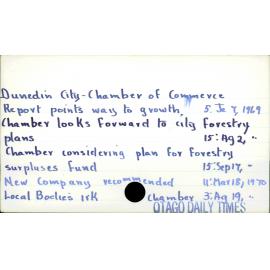 Dunedin City-Chamber of Commerce
Report points way to growth, 5: Je 7, 1969
Chamber looks forward to city forestry
plans 15: Ag 2, "
Chamber considering plan for forestry
surpluses fund 15: Sep 17, "
New Company recommended 11: Mar 18, 1970
Local Bodies irk chamber 3: Ag 19, "
OTAGO DAILY TIMES